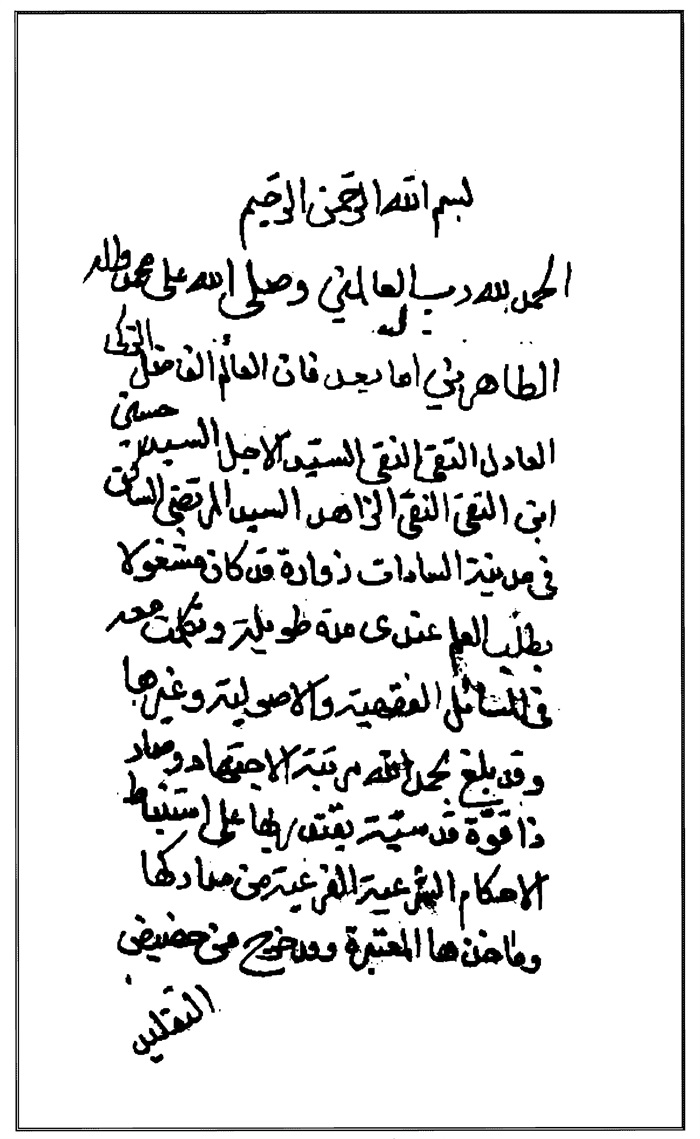 بسم الله الرحمن الرحيم
الحمد لله رب العالمين وصلى الله على محمد وآله
الطاهرين اما بعد فان العالم الفاضل الزكي
العادل التقي النقي السيد الاجل السيد حسين
ابن التقي النقي الزاهد السيد المرتضى الساكن
في مدينة السادات زوارة قد كان مشغولا
بطلب العلم عندى مدة طويلة وتكلمت معه
في المسائل الفقهية والاصولية وغيرها
وقد بلغ بحمد الله مرتبة الاجتهاد وصار
ذا قوة قدسية يقتدر بها على استنباط
الاحكام الشرعية الفرعية من مداركها
وماخذها المعتبرة وقد خرج من حضيض
التقليد